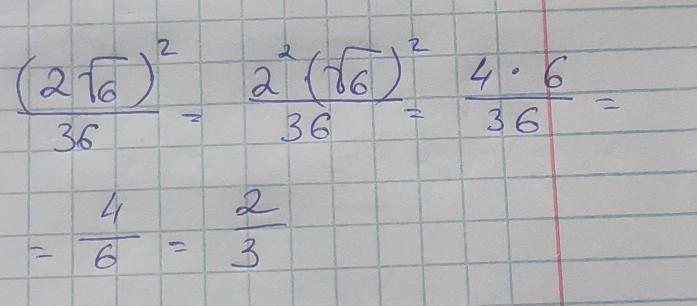 (2√6)²/36 = 2²(√6)²/36 = 4·6/36 =
= 4/6 = 2/3